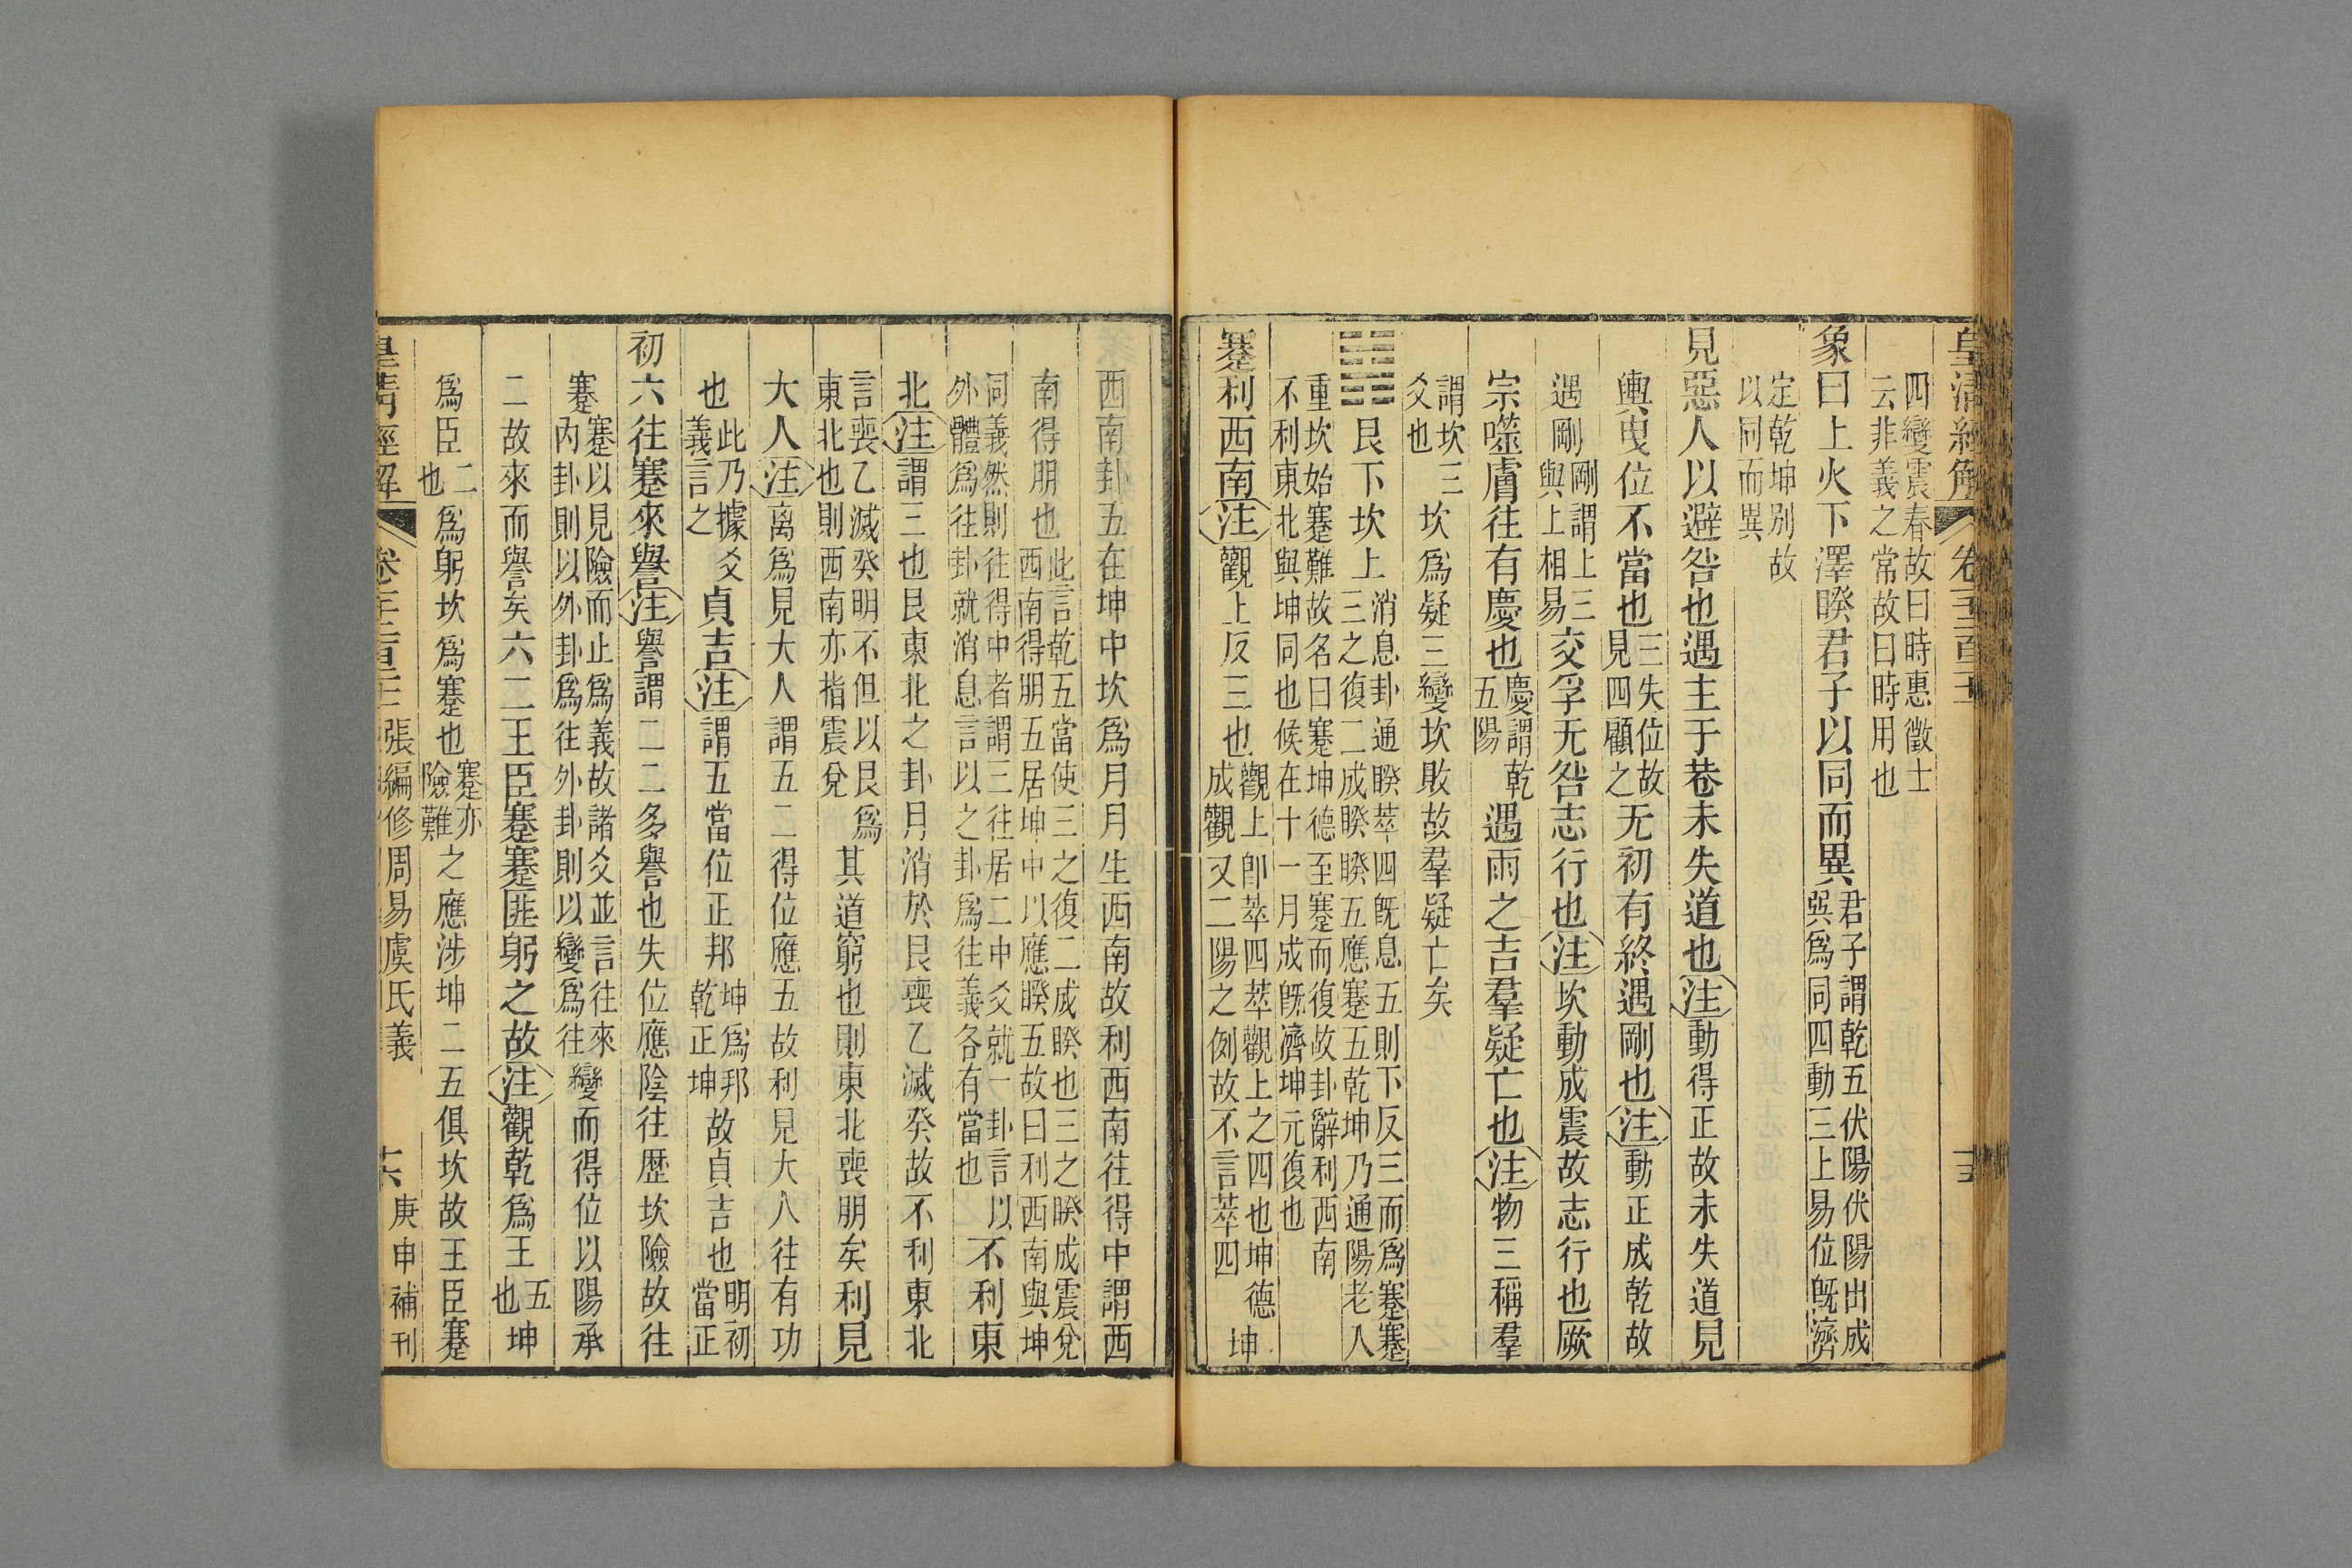 皇清經解 卷一千二百二十三
四變震春故曰時惠徵士
云非義之常故曰時用也
象曰上火下澤睽君子以同而異君子謂乾五伏陽伏陽出成
巽爲同四動三上易位旣濟
定乾坤別故
以同而異
見惡人以避咎也遇主于巷未失道也注動得正故未失道見
輿曳位不當也三失位故
見四顧之无初有終遇剛也注動正成乾故
遇剛剛謂上三
與上相易交孚无咎志行也注坎動成震故志行也厥
宗噬膚往有慶也慶謂乾
五陽遇雨之吉羣疑亡也注物三稱羣
謂坎三
爻也坎爲疑三變坎敗故羣疑亡矣
䷦艮下坎上消息卦通睽萃四旣息五則下反三而爲蹇蹇
三之復二成睽睽五應蹇五乾坤乃通陽老人
重坎始蹇難故名曰蹇坤德至蹇而復故卦辭利西南
不利東北與坤同也候在十一月成旣濟坤元復也
蹇利西南注觀上反三也觀上卽萃四萃觀上之四也坤德
成觀又二陽之例故不言萃四坤
西南卦五在坤中坎爲月月生西南故利西南往得中謂西
南得朋也此言乾五當使三之復二成睽也三之睽成震兌
西南得朋五居坤中以應睽五故曰利西南與坤
同義然則往得中者謂三往居二中爻就一卦言以
外體爲往卦就消息言以之卦爲往義各有當也不利東
北注謂三也艮東北之卦月消於艮喪乙滅癸故不利東北
言喪乙滅癸明不但以艮爲
東北也則西南亦指震兌其道窮也則東北喪朋矣利見
大人注离爲見大人謂五二得位應五故利見大人往有功
也此乃據爻
義言之貞吉注謂五當位正邦坤爲邦
乾正坤故貞吉也明初
當正
初六往蹇來譽注譽謂二二多譽也失位應陰往歷坎險故往
蹇蹇以見險而止爲義故諸爻並言往來
內卦則以外卦爲往外卦則以變爲往變而得位以陽承
二故來而譽矣六二王臣蹇蹇匪躬之故注觀乾爲王五
也坤
爲臣二
也爲躬坎爲蹇也蹇亦
險難之應涉坤二五俱坎故王臣蹇
皇清經解 張編修周易虞氏義 庚申補刊